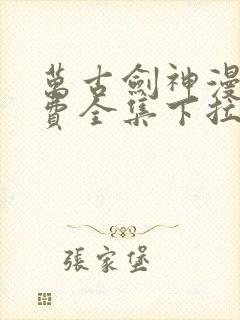 萬古劍神漫
費全集下拉
張家堡